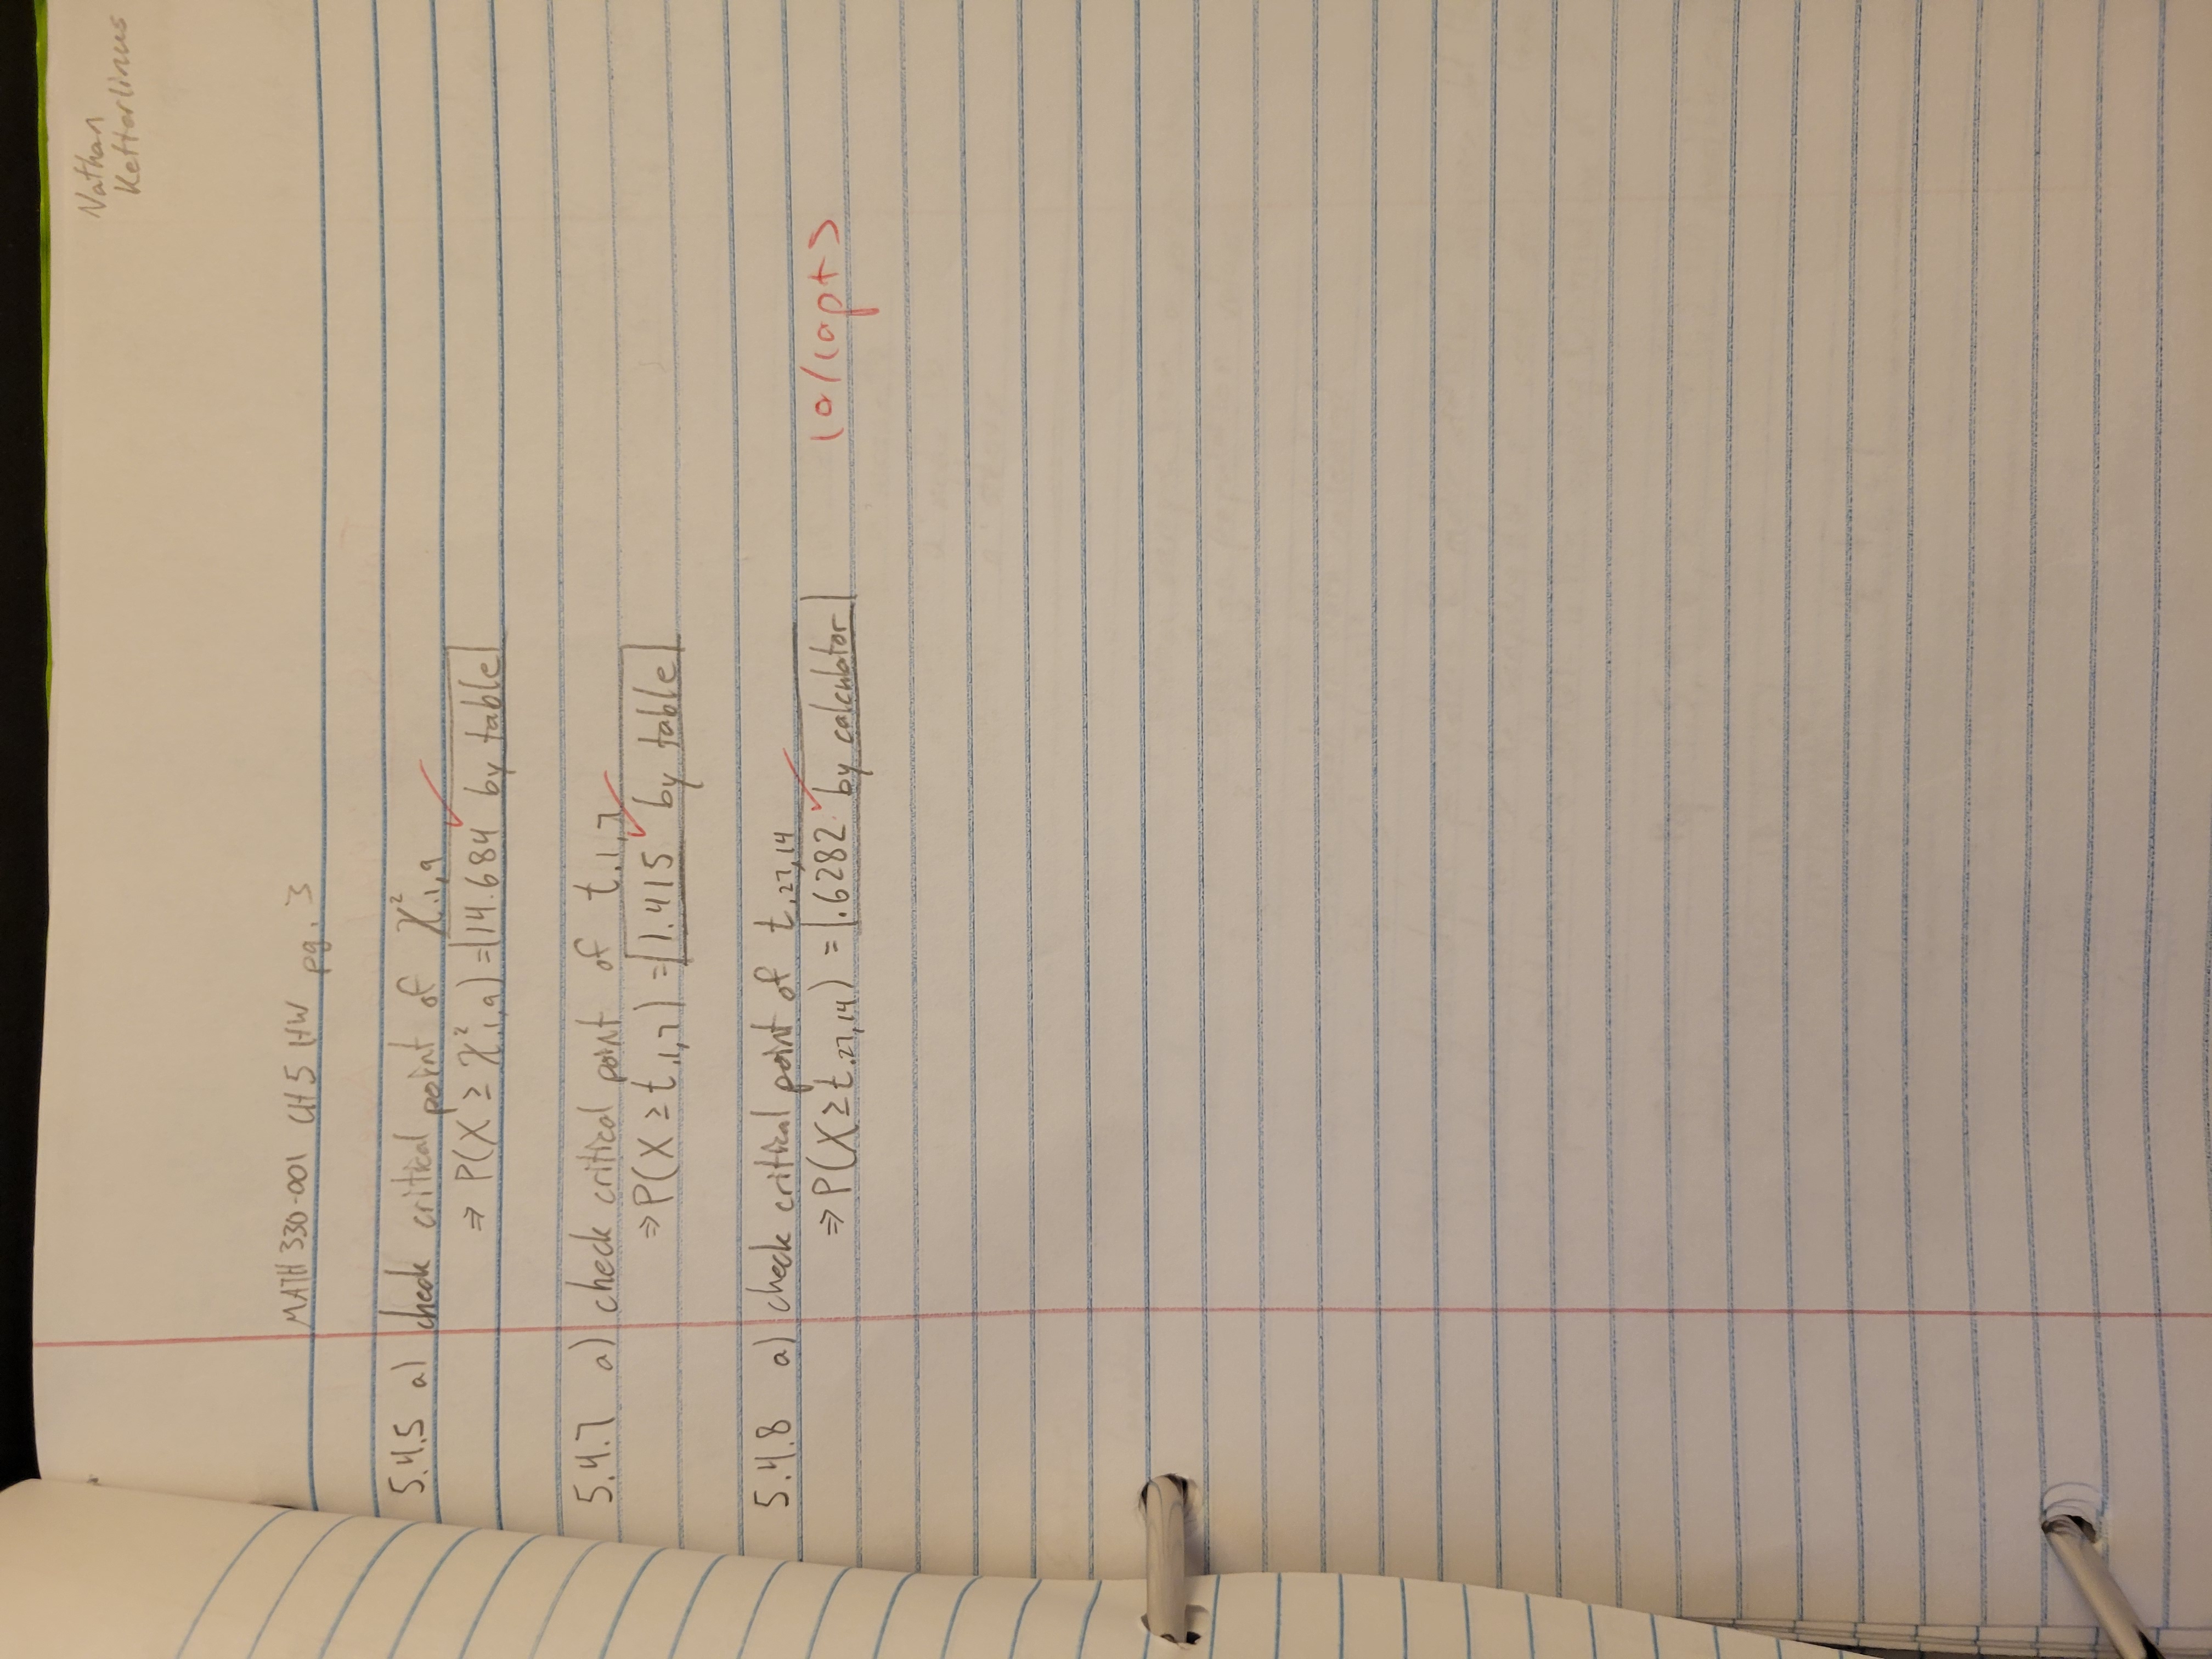 Nathan
Ketterlinus
MATH 330-001 CH 5 HW pg. 3
5.4.5 a) check critical point of χ².1,9
⇒ P(X ≥ χ².1,9) = 14.684 by table
5.4.7 a) check critical point of t.1,7
⇒ P(X ≥ t.1,7) = 1.415 by table
5.4.8 a) check critical point of t.27,14
⇒ P(X ≥ t.27,14) = .6282 by calculator
10/10pts